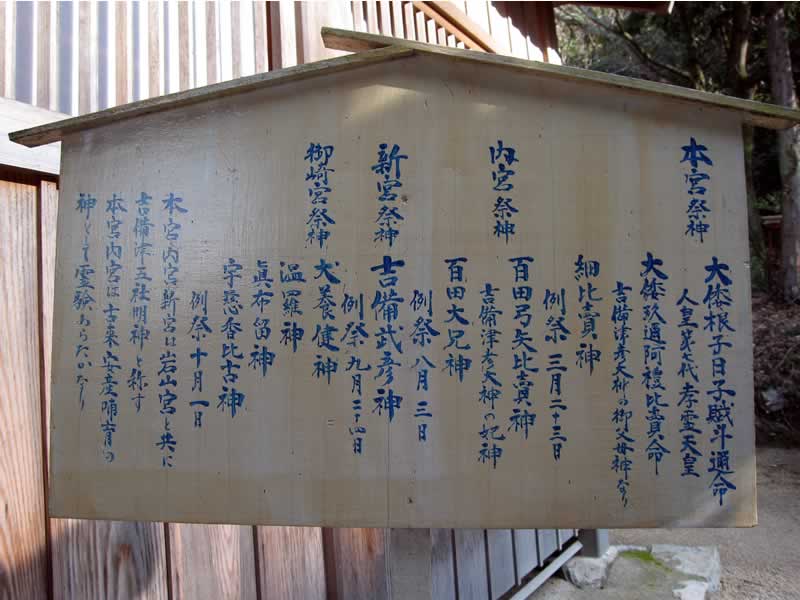 本宮祭神
大倭根子日子賦斗邇命
人皇第七代 孝霊天皇
大倭玖邇阿禮比賣命
吉備津彦大神の御父母神なり
細比賣神
例祭 三月二十三日
内宮祭神
百田弓矢比賣神
吉備津彦大神の妃神
百田大兄神
例祭 八月三日
新宮祭神
吉備武彦神
例祭 九月二十四日
御崎宮祭神
犬養健神
温羅神
眞布留神
宇慈香比古神
例祭 十月一日
本宮内宮新宮は岩山宮と共に
吉備津五社明神と称す
本宮内宮は古来安産哺育の
神として霊験あらたかなり